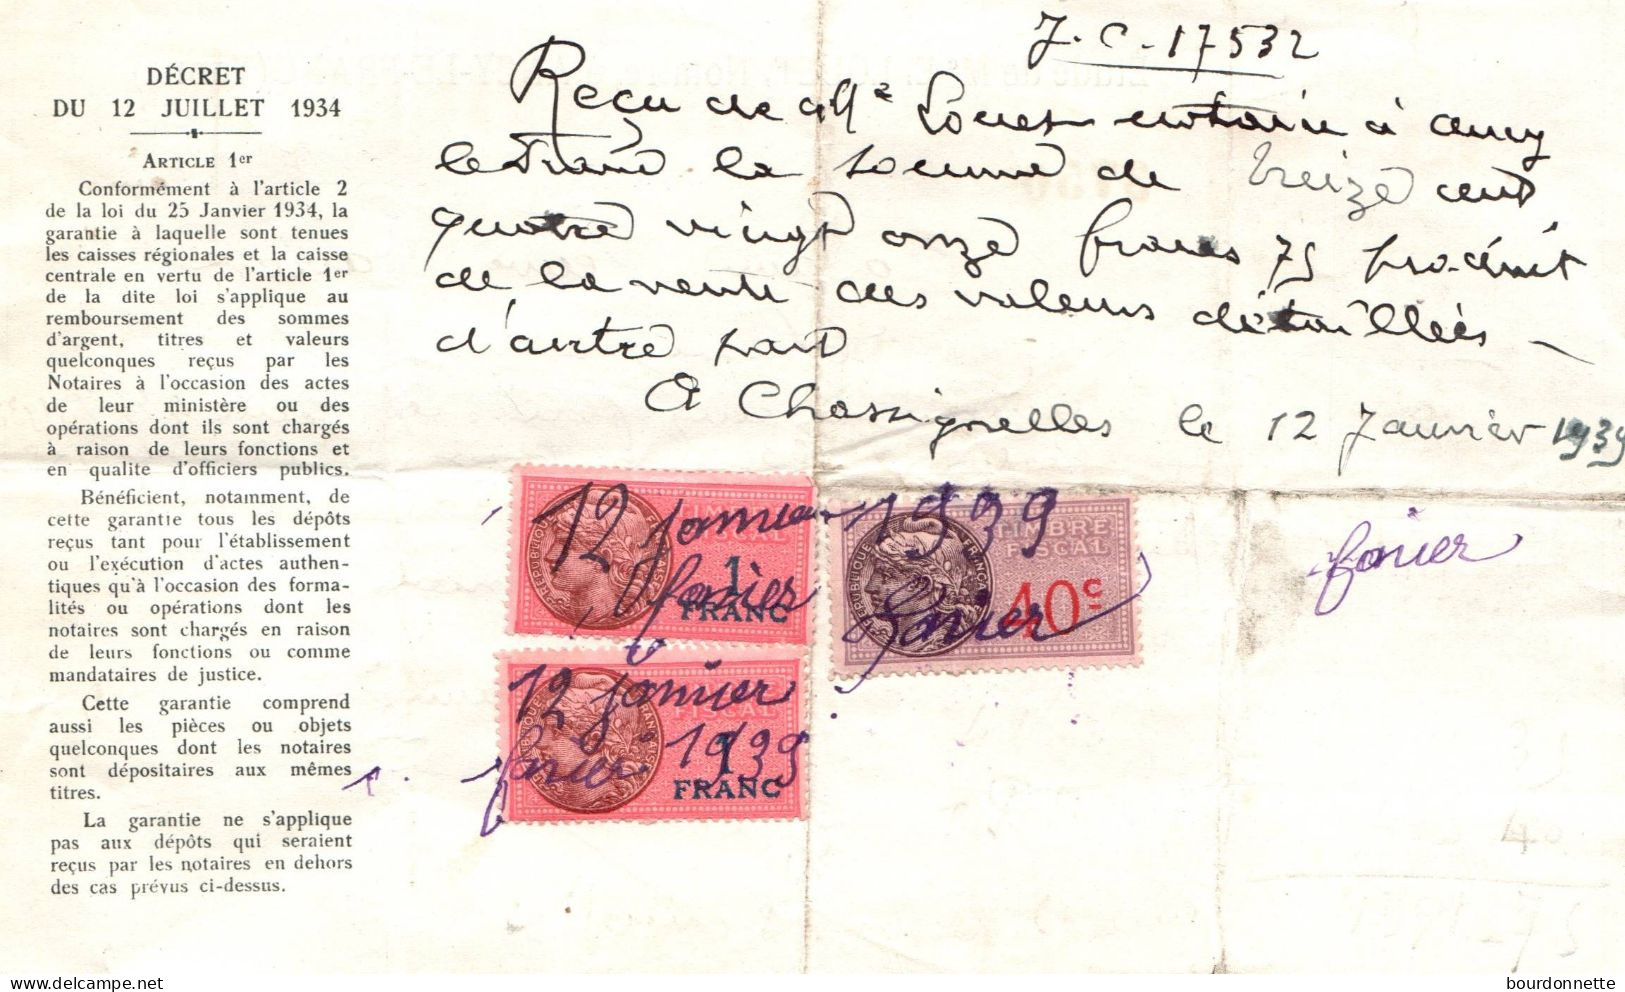 DÉCRET
DU 12 JUILLET 1934
ARTICLE 1er
Conformément à l'article 2
de la loi du 25 Janvier 1934, la
garantie à laquelle sont tenues
les caisses régionales et la caisse
centrale en vertu de l'article 1er
de la dite loi s'applique au
remboursement des sommes
d'argent, titres et valeurs
quelconques reçus par les
Notaires à l'occasion des actes
de leur ministère ou des
opérations dont ils sont chargés
à raison de leurs fonctions et
en qualite d'officiers publics.
Bénéficient, notamment, de
cette garantie tous les dépôts
reçus tant pour l'établissement
ou l'exécution d'actes authen-
tiques qu'à l'occasion des forma-
lités ou opérations dont les
notaires sont chargés en raison
de leurs fonctions ou comme
mandataires de justice.
Cette garantie comprend
aussi les pièces ou objets
quelconques dont les notaires
sont dépositaires aux mêmes
titres.
La garantie ne s'applique
pas aux dépôts qui seraient
reçus par les notaires en dehors
des cas prévus ci-dessus.
J.C-17532
Reçu de Me notaire à ancy
le franc la somme de treize cent
quatre vingt onze francs 75 produit
de la vente des valeurs détaillées
d'autre part
A Chassignelles le 12 Janvier 1939
12 janvier 1939
1
FRANC
TIMBRE
FISCAL
40c
12 janvier
FISCAL
1939
1
FRANC
bourdonnette